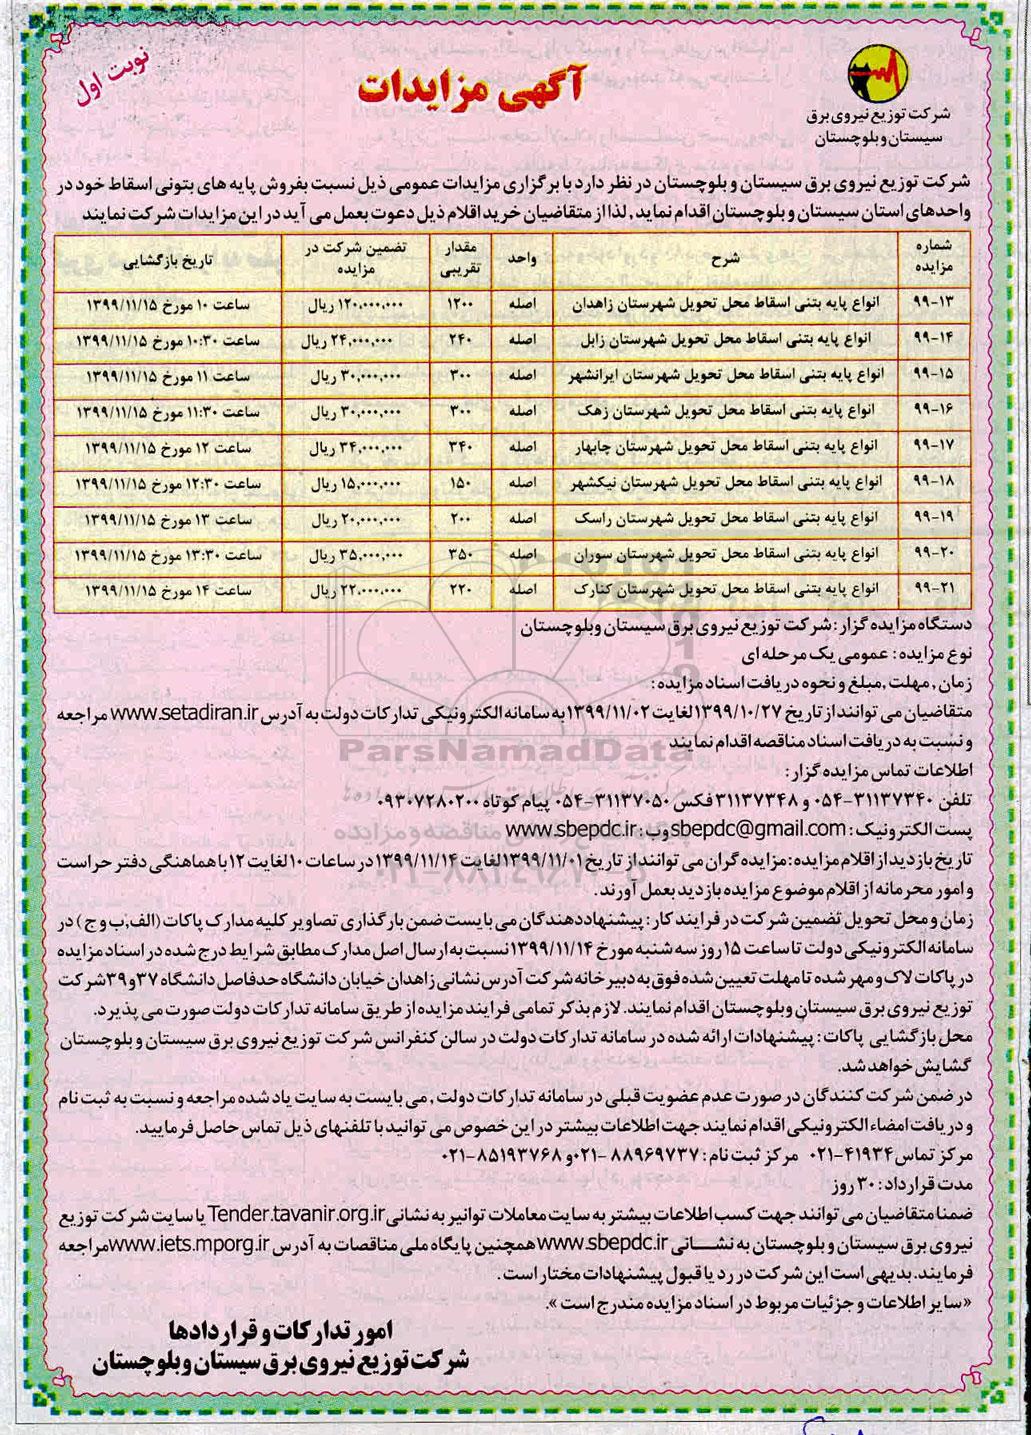 نوبت اول
آگهی مزایدات
شرکت توزیع نیروی برق
سیستان و بلوچستان
شرکت توزیع نیروی برق سیستان و بلوچستان در نظر دارد با برگزاری مزایدات عمومی ذیل نسبت بفروش پایه های بتونی اسقاط خود در
واحدهای استان سیستان و بلوچستان اقدام نماید , لذا از متقاضیان خرید اقلام ذیل دعوت بعمل می آید در این مزایدات شرکت نمایند
شماره مزایده | شرح | واحد | مقدار تقریبی | تضمین شرکت در مزایده | تاریخ بازگشایی
۹۹-۱۳ | انواع پایه بتنی اسقاط محل تحویل شهرستان زاهدان | اصله | ۱۲۰۰ | ۱۲۰،۰۰۰،۰۰۰ ریال | ساعت ۱۰ مورخ ۱۳۹۹/۱۱/۱۵
۹۹-۱۴ | انواع پایه بتنی اسقاط محل تحویل شهرستان زابل | اصله | ۲۴۰ | ۲۴,۰۰۰,۰۰۰ ریال | ساعت ۱۰:۳۰ مورخ ۱۳۹۹/۱۱/۱۵
۹۹-۱۵ | انواع پایه بتنی اسقاط محل تحویل شهرستان ایرانشهر | اصله | ۳۰۰ | ۳۰,۰۰۰,۰۰۰ ریال | ساعت ۱۱ مورخ ۱۳۹۹/۱۱/۱۵
۹۹-۱۶ | انواع پایه بتنی اسقاط محل تحویل شهرستان زهک | اصله | ۳۰۰ | ۳۰,۰۰۰,۰۰۰ ریال | ساعت ۱۱:۳۰ مورخ ۱۳۹۹/۱۱/۱۵
۹۹-۱۷ | انواع پایه بتنی اسقاط محل تحویل شهرستان چابهار | اصله | ۳۴۰ | ۳۴,۰۰۰,۰۰۰ ریال | ساعت ۱۲ مورخ ۱۳۹۹/۱۱/۱۵
۹۹-۱۸ | انواع پایه بتنی اسقاط محل تحویل شهرستان نیکشهر | اصله | ۱۵۰ | ۱۵,۰۰۰,۰۰۰ ریال | ساعت ۱۲:۳۰ مورخ ۱۳۹۹/۱۱/۱۵
۹۹-۱۹ | انواع پایه بتنی اسقاط محل تحویل شهرستان راسک | اصله | ۲۰۰ | ۲۰,۰۰۰,۰۰۰ ریال | ساعت ۱۳ مورخ ۱۳۹۹/۱۱/۱۵
۹۹-۲۰ | انواع پایه بتنی اسقاط محل تحویل شهرستان سوران | اصله | ۳۵۰ | ۳۵,۰۰۰,۰۰۰ ریال | ساعت ۱۳:۳۰ مورخ ۱۳۹۹/۱۱/۱۵
۹۹-۲۱ | انواع پایه بتنی اسقاط محل تحویل شهرستان کنارک | اصله | ۲۲۰ | ۲۲,۰۰۰,۰۰۰ ریال | ساعت ۱۴ مورخ ۱۳۹۹/۱۱/۱۵
دستگاه مزایده گزار : شرکت توزیع نیروی برق سیستان وبلوچستان
نوع مزایده : عمومی یک مرحله ای
زمان , مهلت ,مبلغ و نحوه دریافت اسناد مزایده :
متقاضیان می توانند از تاریخ ۱۳۹۹/۱۰/۲۷ لغایت ۱۳۹۹/۱۱/۰۲ به سامانه الکترونیکی تدارکات دولت به آدرس www.setadiran.ir مراجعه
و نسبت به دریافت اسناد مناقصه اقدام نمایند
ParsNamadData
اطلاعات تماس مزایده گزار :
تلفن ۳۱۱۳۷۳۴۰-۰۵۴ و ۳۱۱۳۷۳۴۸ فکس ۳۱۱۳۷۰۵۰-۰۵۴ پیام کوتاه ۰۹۳۰۷۲۸۰۲۰۰
پست الکترونیک : sbepdc@gmail.com وب : www.sbepdc.ir
تاریخ بازدید از اقلام مزایده : مزایده گران می توانند از تاریخ ۱۳۹۹/۱۱/۰۱ لغایت ۱۳۹۹/۱۱/۱۴ در ساعات ۱۰ لغایت ۱۲ با هماهنگی دفتر حراست
و امور محرمانه از اقلام موضوع مزایده بازدید بعمل آورند.
زمان و محل تحویل تضمین شرکت در فرایند کار : پیشنهاددهندگان می بایست ضمن بارگذاری تصاویر کلیه مدارک پاکات (الف,ب و ج ) در
سامانه الکترونیکی دولت تا ساعت ۱۵ روز سه شنبه مورخ ۱۳۹۹/۱۱/۱۴ نسبت به ارسال اصل مدارک مطابق شرایط درج شده در اسناد مزایده
در پاکات لاک و مهر شده تا مهلت تعیین شده فوق به دبیرخانه شرکت آدرس نشانی زاهدان خیابان دانشگاه حدفاصل دانشگاه ۳۷ و ۳۹ شرکت
توزیع نیروی برق سیستان وبلوچستان اقدام نمایند. لازم بذکر تمامی فرایند مزایده از طریق سامانه تدارکات دولت صورت می پذیرد.
محل بازگشایی پاکات : پیشنهادات ارائه شده در سامانه تدارکات دولت در سالن کنفرانس شرکت توزیع نیروی برق سیستان و بلوچستان
گشایش خواهد شد.
در ضمن شرکت کنندگان در صورت عدم عضویت قبلی در سامانه تدارکات دولت , می بایست به سایت یاد شده مراجعه و نسبت به ثبت نام
و دریافت امضاء الکترونیکی اقدام نمایند جهت اطلاعات بیشتر در این خصوص می توانید با تلفنهای ذیل تماس حاصل فرمایید.
مرکز تماس ۴۱۹۳۴-۰۲۱ مرکز ثبت نام : ۸۸۹۶۹۷۳۷-۰۲۱ و ۸۵۱۹۳۷۶۸-۰۲۱
مدت قرارداد : ۳۰ روز
ضمنا متقاضیان می توانند جهت کسب اطلاعات بیشتر به سایت معاملات توانیر به نشانی Tender.tavanir.org.ir یا سایت شرکت توزیع
نیروی برق سیستان و بلوچستان به نشانی www.sbepdc.ir همچنین پایگاه ملی مناقصات به آدرس www.iets.mporg.ir مراجعه
فرمایند. بدیهی است این شرکت در رد یا قبول پیشنهادات مختار است .
«سایر اطلاعات و جزئیات مربوط در اسناد مزایده مندرج است ».
امور تدارکات و قراردادها
شرکت توزیع نیروی برق سیستان و بلوچستان